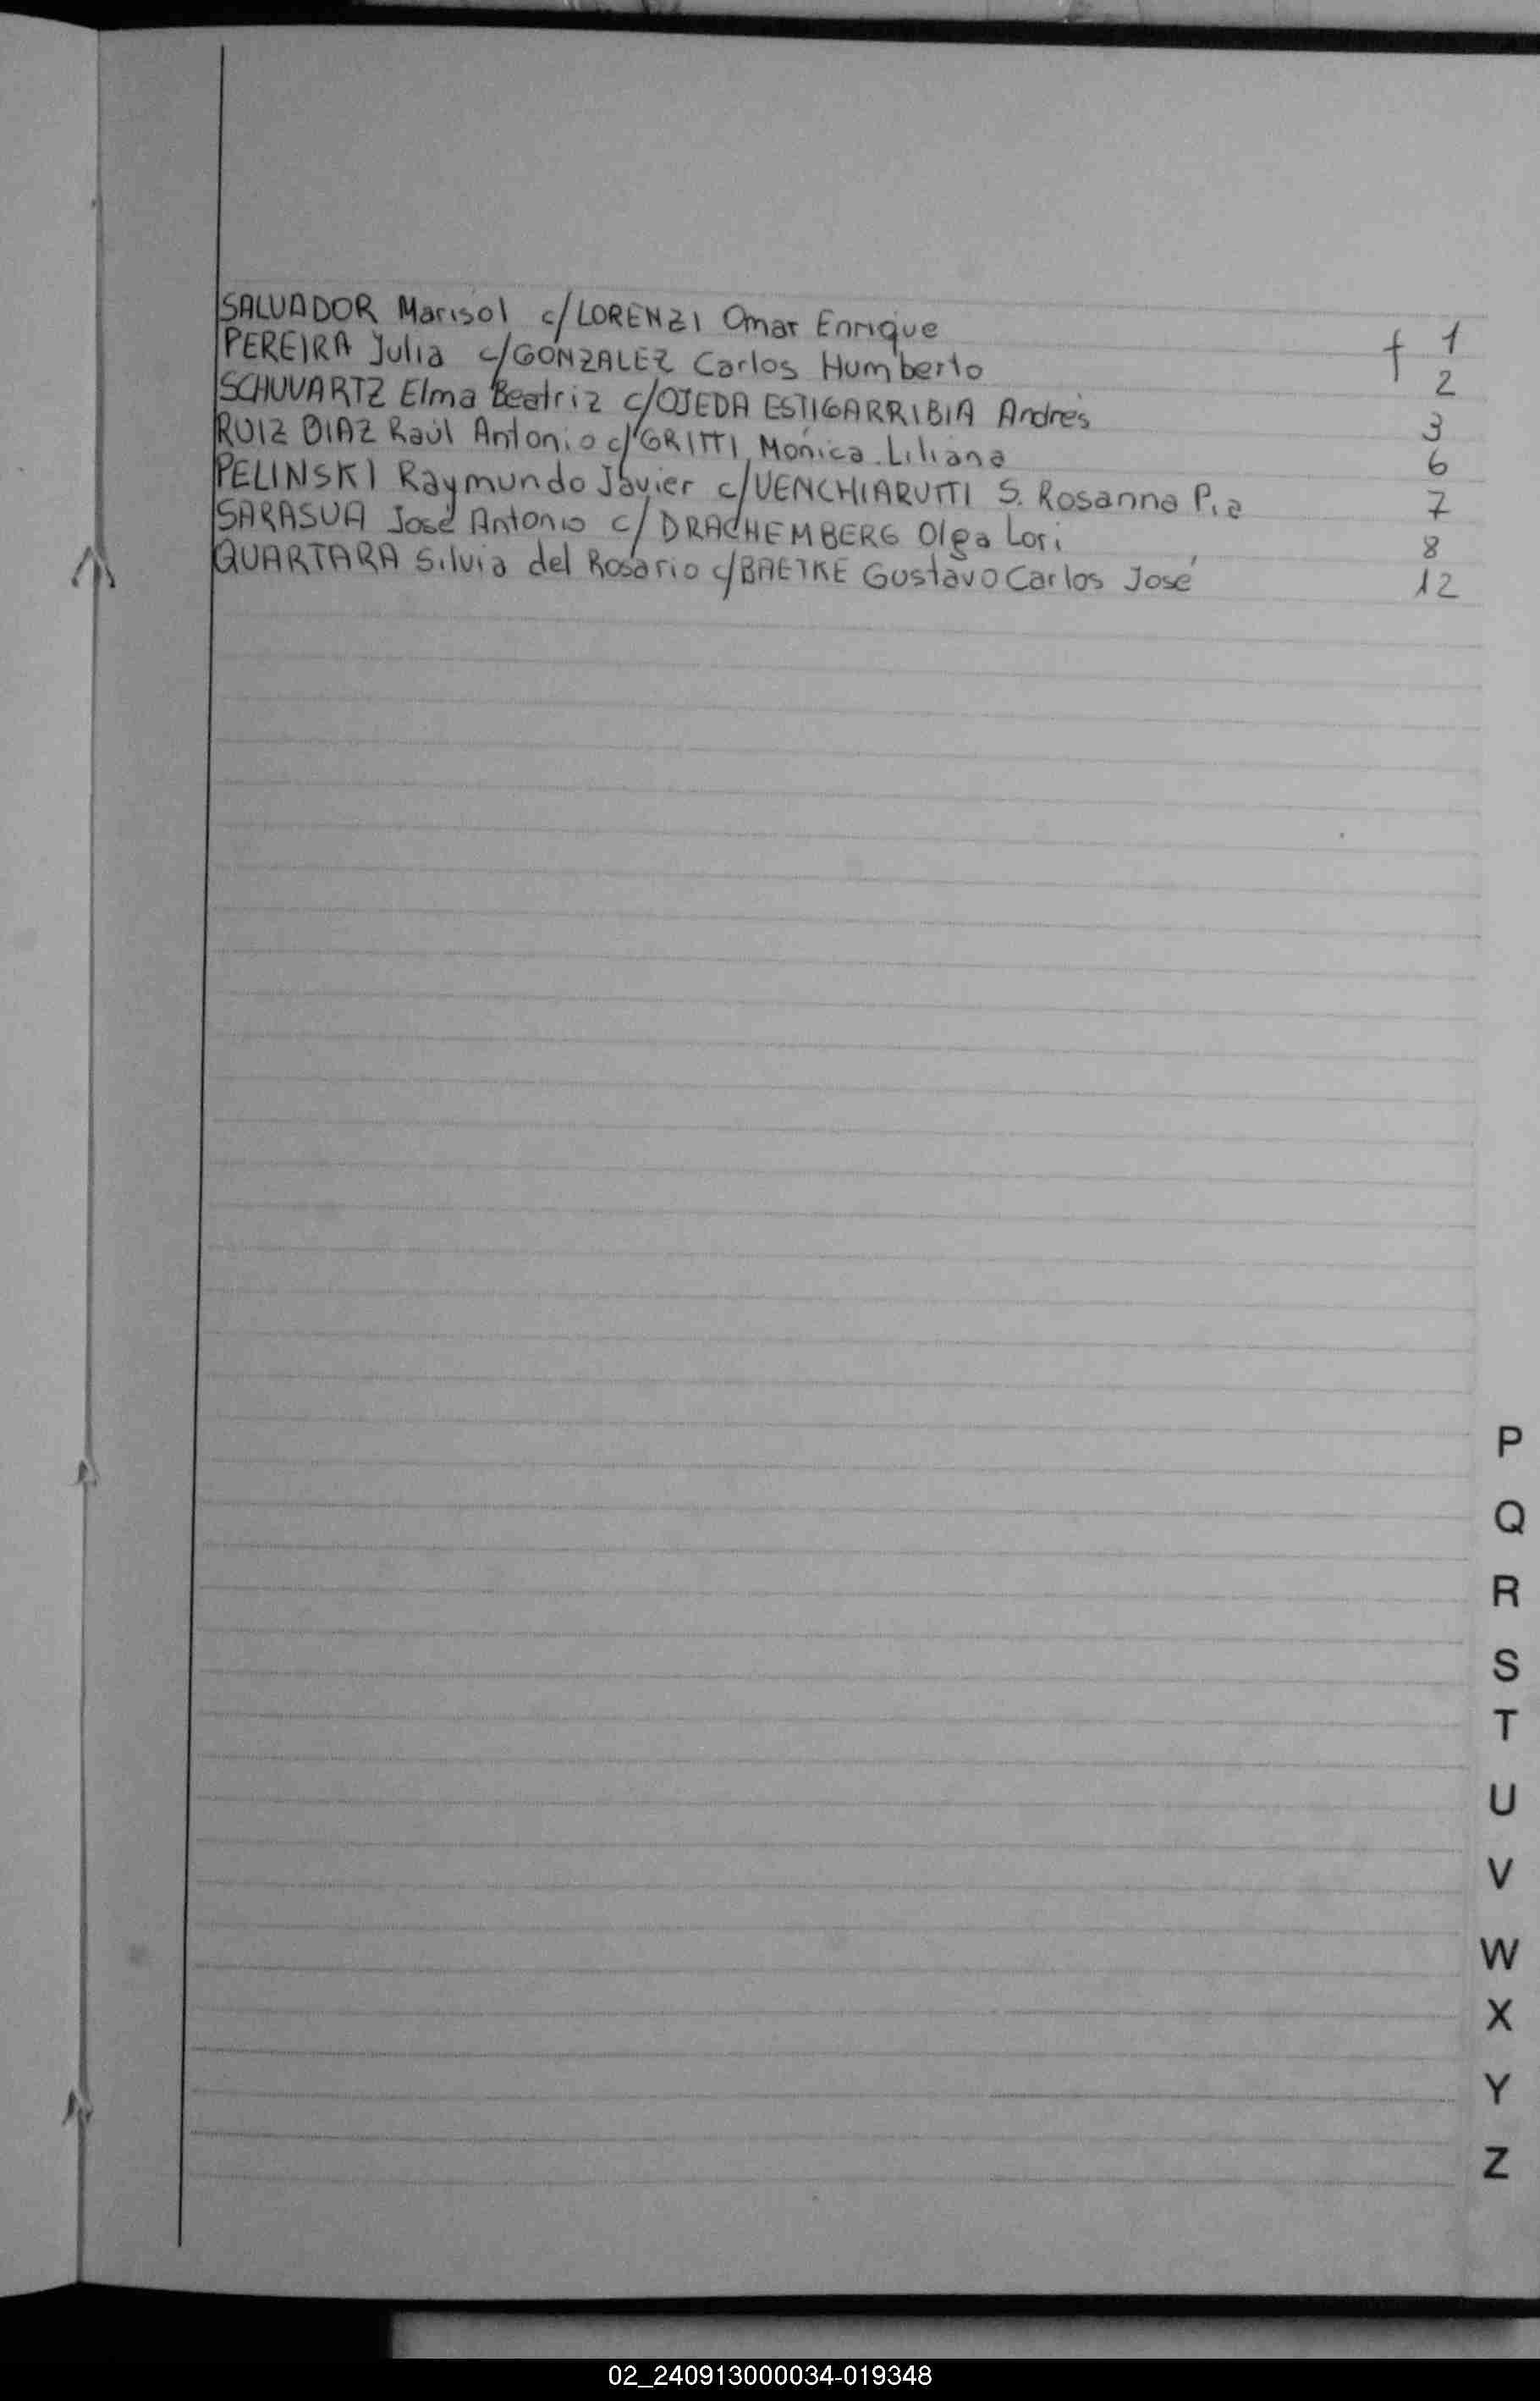 SALVADOR Marisol c/LORENZI Omar Enrique f 1
PEREIRA Julia c/GONZALEZ Carlos Humberto 2
SCHUVARTZ Elma Beatriz c/OJEDA ESTIGARRIBIA Andrés 3
RUIZ DIAZ Raúl Antonio c/GRITTI Mónica Liliana 6
PELINSKI Raymundo Javier c/VENCHIARUTTI S. Rosanna Pia 7
SARASUA José Antonio c/DRACHEMBERG Olga Lori 8
QUARTARA Silvia del Rosario c/BAETKE Gustavo Carlos José 12
P
Q
R
S
T
U
V
W
X
Y
Z
02_240913000034-019348